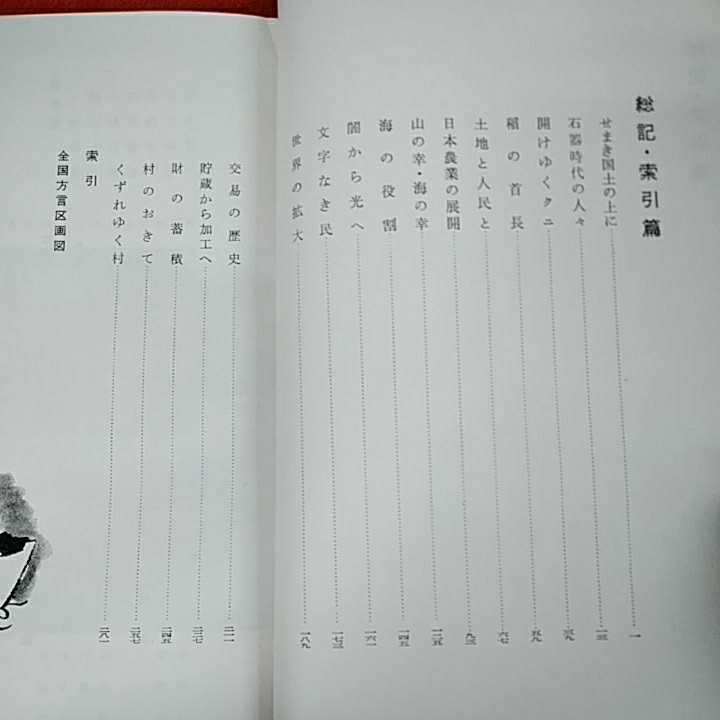 総記・索引篇
せまき国土の上に……一
石器時代の人々……一三
開けゆくクニ……三九
稲の首長……五九
土地と人民と……六七
日本農業の展開……九三
山の幸・海の幸……一二五
海の役割……一四五
闇から光へ……一六一
文字なき民……一七三
世界の拡大……一八九
交易の歴史……二一一
貯蔵から加工へ……二三七
財の蓄積……二四五
村のおきて……二五七
くずれゆく村……二八一
索引
全国方言区画図